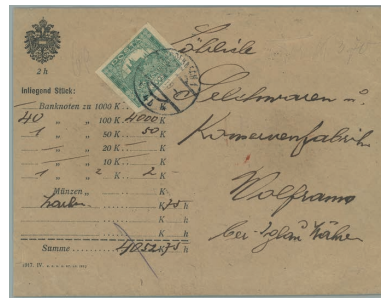 2 h
Inliegend Stück:
Banknoten zu 1000 K
40 „ „ 100 K 4000 K
1 „ „ 50 K 50 K
„ „ 20 K K
„ „ 10 K K
1 „ „ 2 K 2 K
Münzen K h
K 75 h
K h
Summe 4052 K 75 h
1917. IV.
Löbliche
Selchwaren u.
Konservenfabrik
Wolframs
bei Iglau Mähren